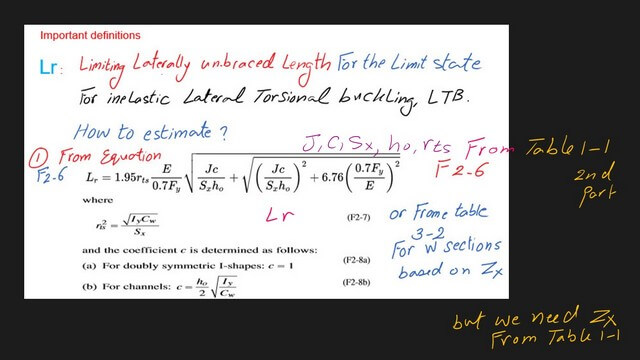 Important definitions
Lr: Limiting Laterally unbraced Length For the Limit state
For inelastic Lateral Torsional buckling, LTB.
How to estimate?
J, C, Sx, ho, rts From Table 1-1
2nd
part
① From Equation
F2-6
L_r = 1.95r_ts E/0.7F_y √(Jc/S_xh_o + √((Jc/S_xh_o)² + 6.76(0.7F_y/E)²))
F2-6
where
Lr
r_ts² = √(I_yC_w)/S_x
(F2-7)
or Frome table
3-2
For W sections
based on Zx
and the coefficient c is determined as follows:
(a) For doubly symmetric I-shapes: c = 1
(F2-8a)
(b) For channels: c = h_o/2 √(I_y/C_w)
(F2-8b)
but we need Zx
From Table 1-1